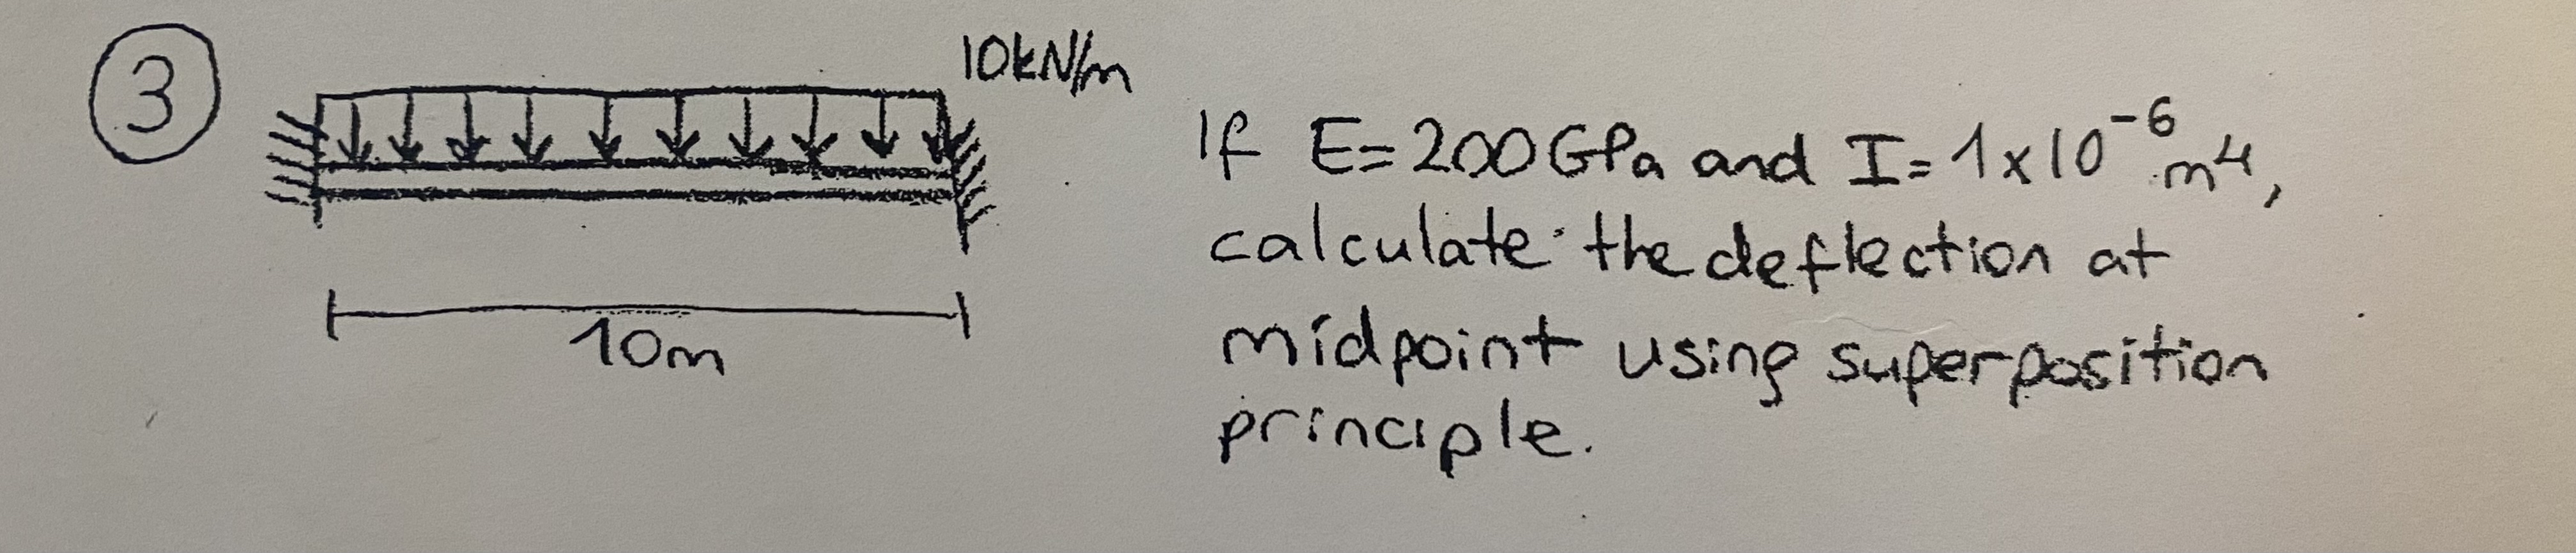 3
10kN/m
10m
If E=200GPa and I=1x10⁻⁶m⁴,
calculate the deflection at
midpoint using superposition
principle.